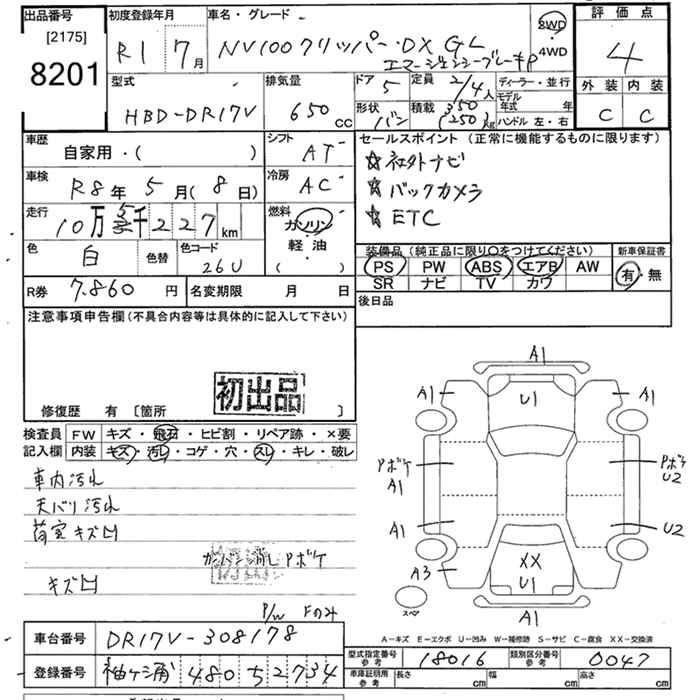 出品番号
[2175]
8201
初度登録年月
R1 7月
車名・グレード
NV100クリッパー・DX GL
エマージェンシーブレーキP
2WD
・
4WD
評価点
4
外装 内装
C C
型式
HBD-DR17V
排気量
650 cc
ドア
5
定員
2/4人
ディーラー・並行
モデル年式 年
形状
バン
積載
350
(250)kg
ハンドル 左・右
車歴
自家用・( )
シフト
AT
車検
R8年5月(8日)
冷房
AC
走行
10万 千227km
燃料
ガソリン
軽油
( )
色
白
色替
色コード
26U
R券 7,860円
名変期限 月 日
セールスポイント (正常に機能するものに限ります)
☆社外ナビ
☆バックカメラ
☆ETC
装備品 (純正品に限り〇をつけてください)
PS PW ABS エアB AW
SR ナビ TV カワ
新車保証書
有・無
後日品
注意事項申告欄(不具合内容等は具体的に記入して下さい)
初出品
修復歴 有 〔箇所 〕
検査員記入欄
FW キズ・飛石・ヒビ割・リペア跡・×要
内装 キズ・汚レ・コゲ・穴・スレ・キレ・破レ
車内汚れ
天バリ汚れ
荷室キズ凹
カンバン消しPボケ
初出品
キズ凹
P/W Fのみ
A1
A1 U1 A1
Pボケ Pボケ
A1 U2
A1 U2
XX
A3 U1
スペア
A1
A-キズ E-エクボ U-凹み W-補修跡 S-サビ C-腐食 XX-交換済
車台番号 DR17V-308178
登録番号 袖ヶ浦 480 5 2734
型式指定番号
参考
18016
類別区分番号
参考
0047
車庫証明用
参考
長さ cm 幅 cm 高さ cm